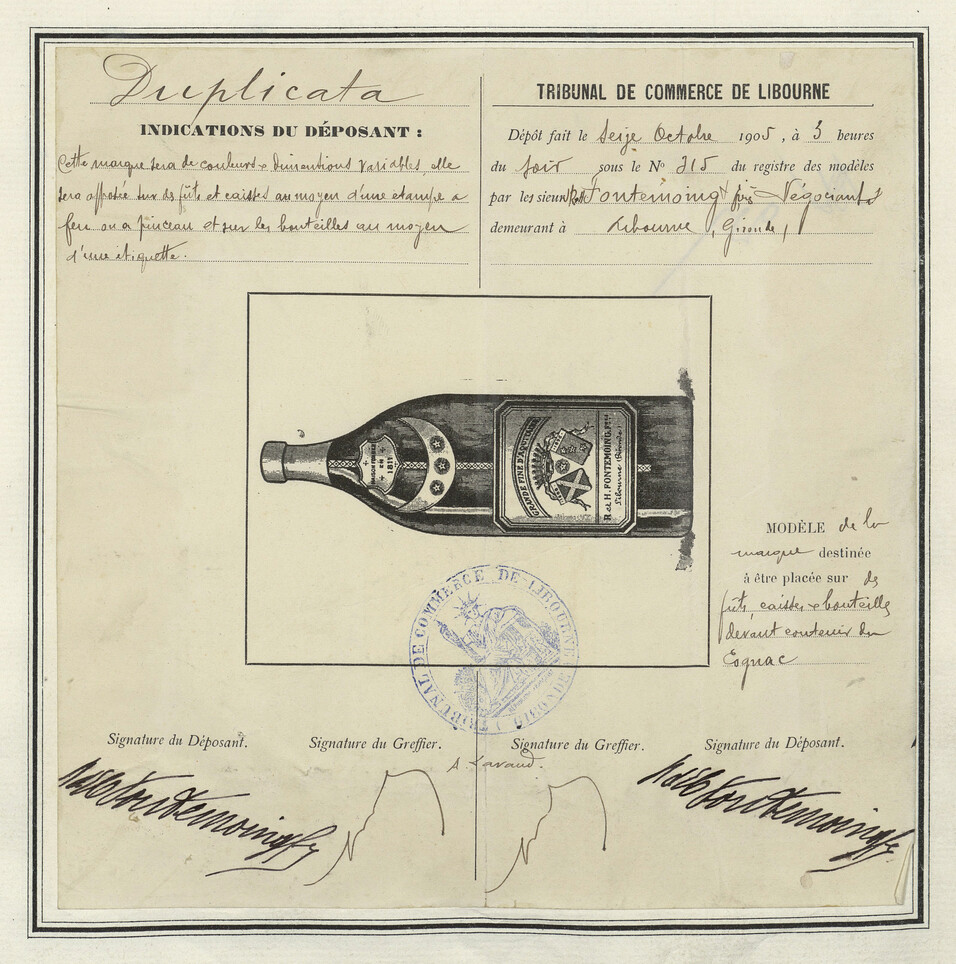 Duplicata
INDICATIONS DU DÉPOSANT :
Cette marque sera de couleurs & dimentions variables, elle
sera apposée sur des fûts et caisses au moyen d'une étampe à
feu ou à pinceau et sur les bouteilles au moyen
d'une étiquette.
TRIBUNAL DE COMMERCE DE LIBOURNE
Dépôt fait le Seize Octobre 1905, à 3 heures
du soir sous le N° 315 du registre des modèles
par les sieurs R & H Fontemoing frès Négociants
demeurant à Libourne (Gironde)
MAISON FONDÉE
EN
1811
GRANDE FINE D'AQUITAINE
R et H. FONTEMOING, Frès
Libourne (Gironde)
MODÈLE de la
marque destinée
à être placée sur des
fûts, caisses & bouteilles
devant contenir du
Cognac
TRIBUNAL DE COMMERCE DE LIBOURNE (GIRONDE)
Signature du Déposant.
Signature du Greffier.
Signature du Greffier.
Signature du Déposant.
A. Lavaud.
R & H Fontemoing fs
R & H Fontemoing fs